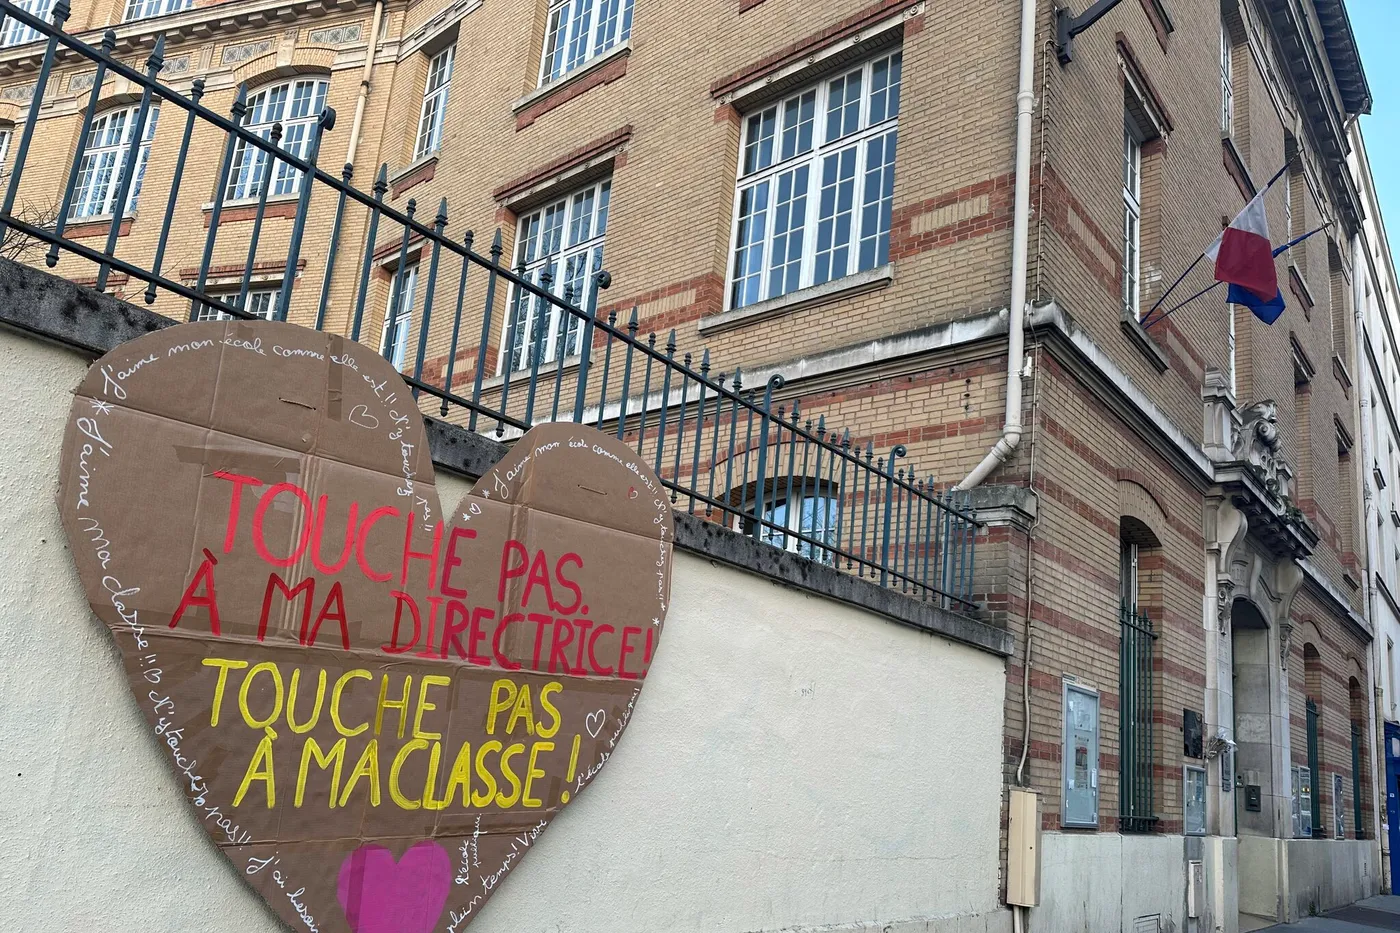 J'aime mon école comme elle est!! N'y touchez pas!!
J'aime mon école comme elle est!! N'y touchez pas!!
TOUCHE PAS.
À MA DIRECTRICE!
TOUCHE PAS
À MA CLASSE!
J'aime ma classe!! N'y touchez pas!!
J'ai besoin
plein temps! Vive
l'école publique!
l'école publique